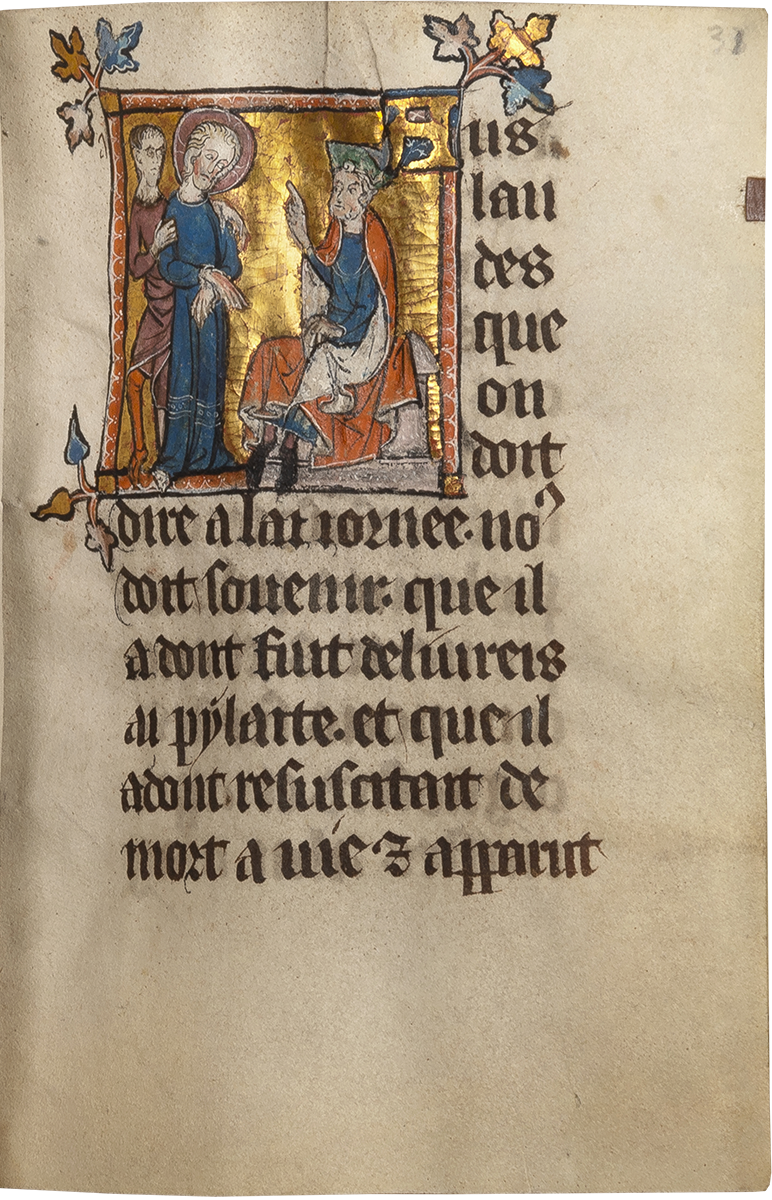 31
Eus
lau
des
que
on
doit
dire a lai iornee. noꝰ
doit souenir. que il
adont fuit deliureis
ai pylaite. et que il
adont resuscitait de
mort a uie ⁊ apparut